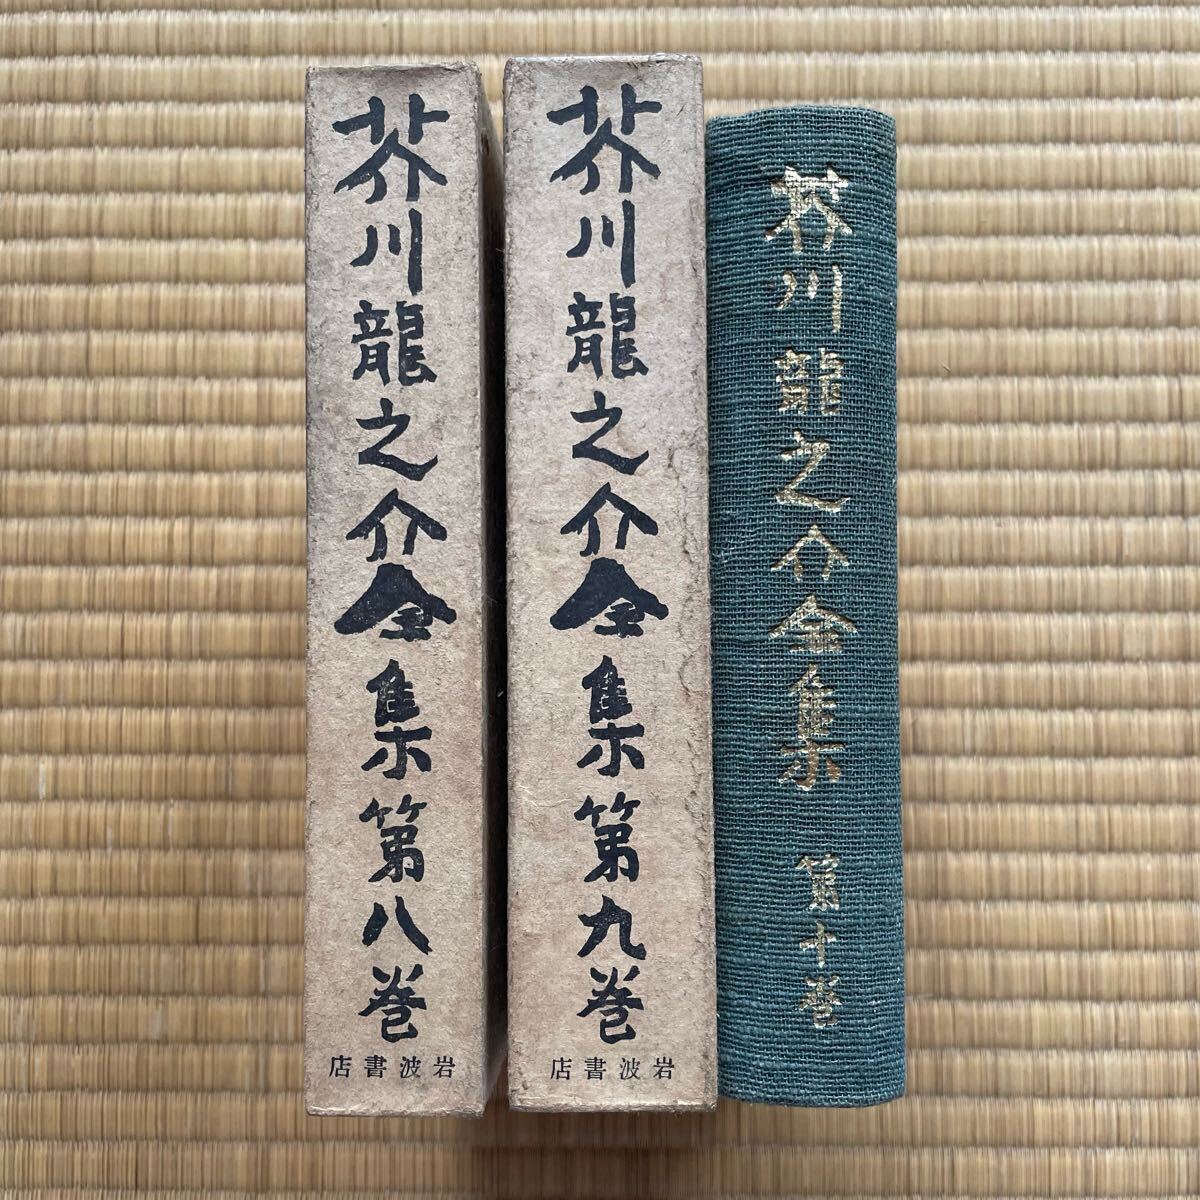 芥川龍之介全集第八巻
店書波岩
芥川龍之介全集第九巻
店書波岩
芥川龍之介全集 第十巻